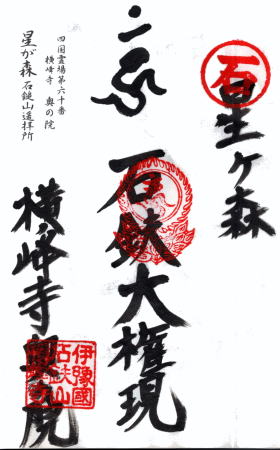 石
星ヶ森
石鈇大権現
横峰寺奥之院
伊豫國
石鈇山
四国霊場第六十番
横峰寺 奥の院
星が森 石鎚山遥拝所